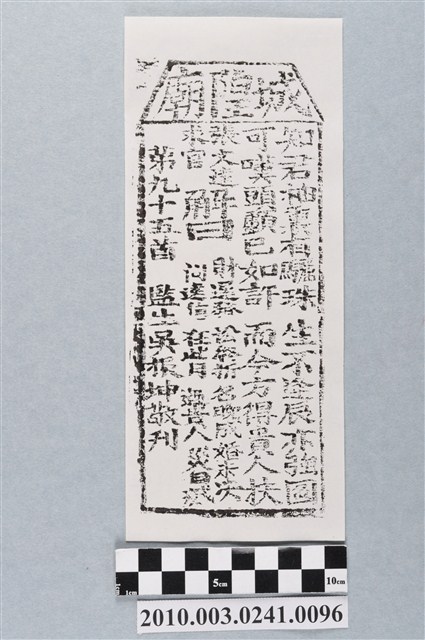 城隍廟
知君袖裏有驪珠 生不逢辰亦強圖
可嘆頭顱已如許 而今方得貴人扶
張文遠
求官
解曰
財遲發 訟終折 名晚成 婚未決
問遠信 在此月 遇貴人 災自滅
第九十五首 監生吳振坤敬刊
1cm 5cm 10cm
2010.003.0241.0096